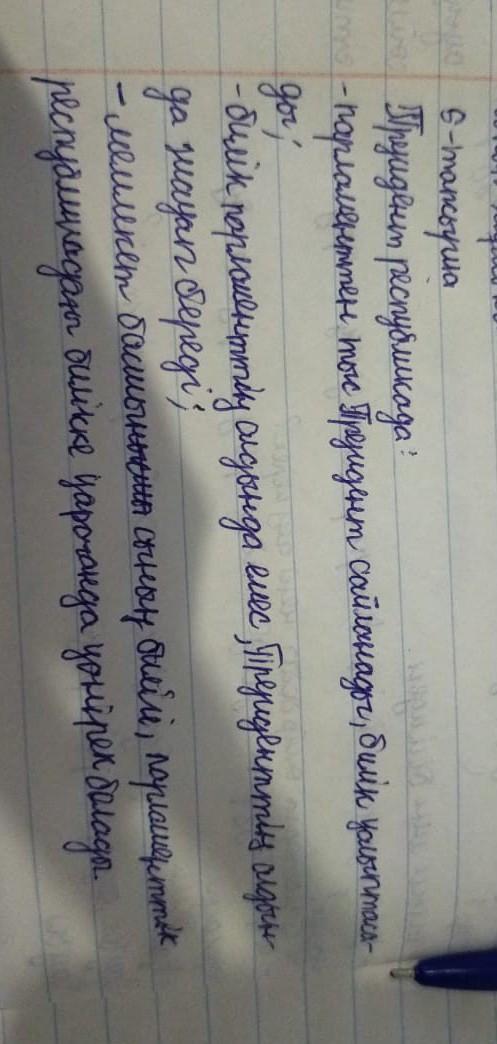 6-тапсырма
Президент республикада:
-парламенттен тыс Президент сайланады, билік қалыптаса-
ды;
-билік парламенттің алдында емес, Президенттің алдын-
да жауап береді;
- мемлекет басшының билігі, парламенттік
республикадағы билікке қарағанда кеңірек болады